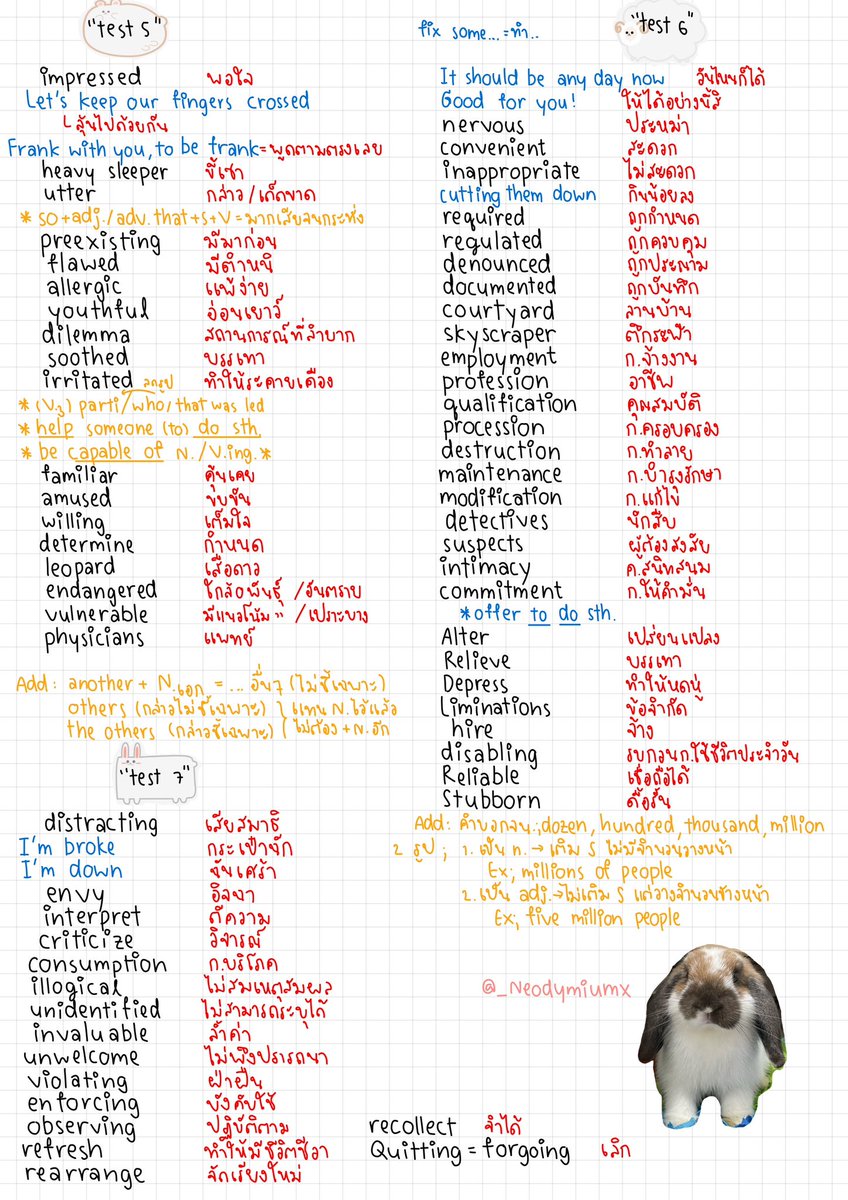 "test 5"
impressed พอใจ
Let's keep our fingers crossed
↳ ลุ้นไปด้วยกัน
Frank with you, to be frank = พูดตามตรงเลย
heavy sleeper ขี้เซา
utter กล่าว / เด็ดขาด
* so + adj./adv. that + S + V = มากเสียจนกระทั่ง
preexisting มีมาก่อน
flawed มีตำหนิ
allergic แพ้ง่าย
youthful อ่อนเยาว์
dilemma สถานการณ์ที่ลำบาก
soothed บรรเทา
irritated ลดรูป ทำให้ระคายเคือง
* (V.3) parti/who, that was led
* help someone (to) do sth.
* be capable of N./V.ing. *
familiar คุ้นเคย
amused ขบขัน
willing เต็มใจ
determine กำหนด
leopard เสือดาว
endangered ใกล้สูญพันธุ์ / อันตราย
vulnerable มีแนวโน้ม " / เปราะบาง
physicians แพทย์
Add: another + N.เอก = ... อื่นๆ (ไม่ชี้เฉพาะ)
others (กล่าวไม่ชี้เฉพาะ) } แทน N. ไว้แล้ว
the others (กล่าวชี้เฉพาะ) } ไม่ต้อง + N. อีก
"test 7"
distracting เสียสมาธิ
I'm broke กระเป๋าฉีก
I'm down ฉันเศร้า
envy อิจฉา
interpret ตีความ
criticize วิจารณ์
consumption ก.บริโภค
illogical ไม่สมเหตุสมผล
unidentified ไม่สามารถระบุได้
invaluable ล้ำค่า
unwelcome ไม่พึงปรารถนา
violating ฝ่าฝืน
enforcing บังคับใช้
observing ปฏิบัติตาม
refresh ทำให้มีชีวิตชีวา
rearrange จัดเรียงใหม่
recollect จำได้
Quitting = forgoing เลิก
fix some... = ทำ..
"test 6"
It should be any day now วันไหนก็ได้
Good for you! ให้ได้อย่างนี้สิ
nervous ประหม่า
convenient สะดวก
inappropriate ไม่สะดวก
cutting them down กินน้อยลง
required ถูกกำหนด
regulated ถูกควบคุม
denounced ถูกประณาม
documented ถูกบันทึก
courtyard ลานบ้าน
skyscraper ตึกระฟ้า
employment ก.จ้างงาน
profession อาชีพ
qualification คุณสมบัติ
procession ก.ครอบครอง
destruction ก.ทำลาย
maintenance ก.บำรุงรักษา
modification ก.แก้ไข
detectives นักสืบ
suspects ผู้ต้องสงสัย
intimacy ค.สนิทสนม
commitment ก.ให้คำมั่น
* offer to do sth.
Alter เปลี่ยนแปลง
Relieve บรรเทา
Depress ทำให้หดหู่
Liminations ข้อจำกัด
hire จ้าง
disabling รบกวนก.ใช้ชีวิตประจำวัน
Reliable เชื่อถือได้
Stubborn ดื้อรั้น
Add: คำบอกจน.; dozen, hundred, thousand, million
2 รูป ; 1. เป็น n. → เติม S ไม่มีจำนวนวางหน้า
Ex; millions of people
2. เป็น adj. → ไม่เติม S แต่วางจำนวนข้างหน้า
Ex; five million people
@_Neodymiumx